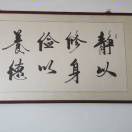 静以
修身
俭以
養德